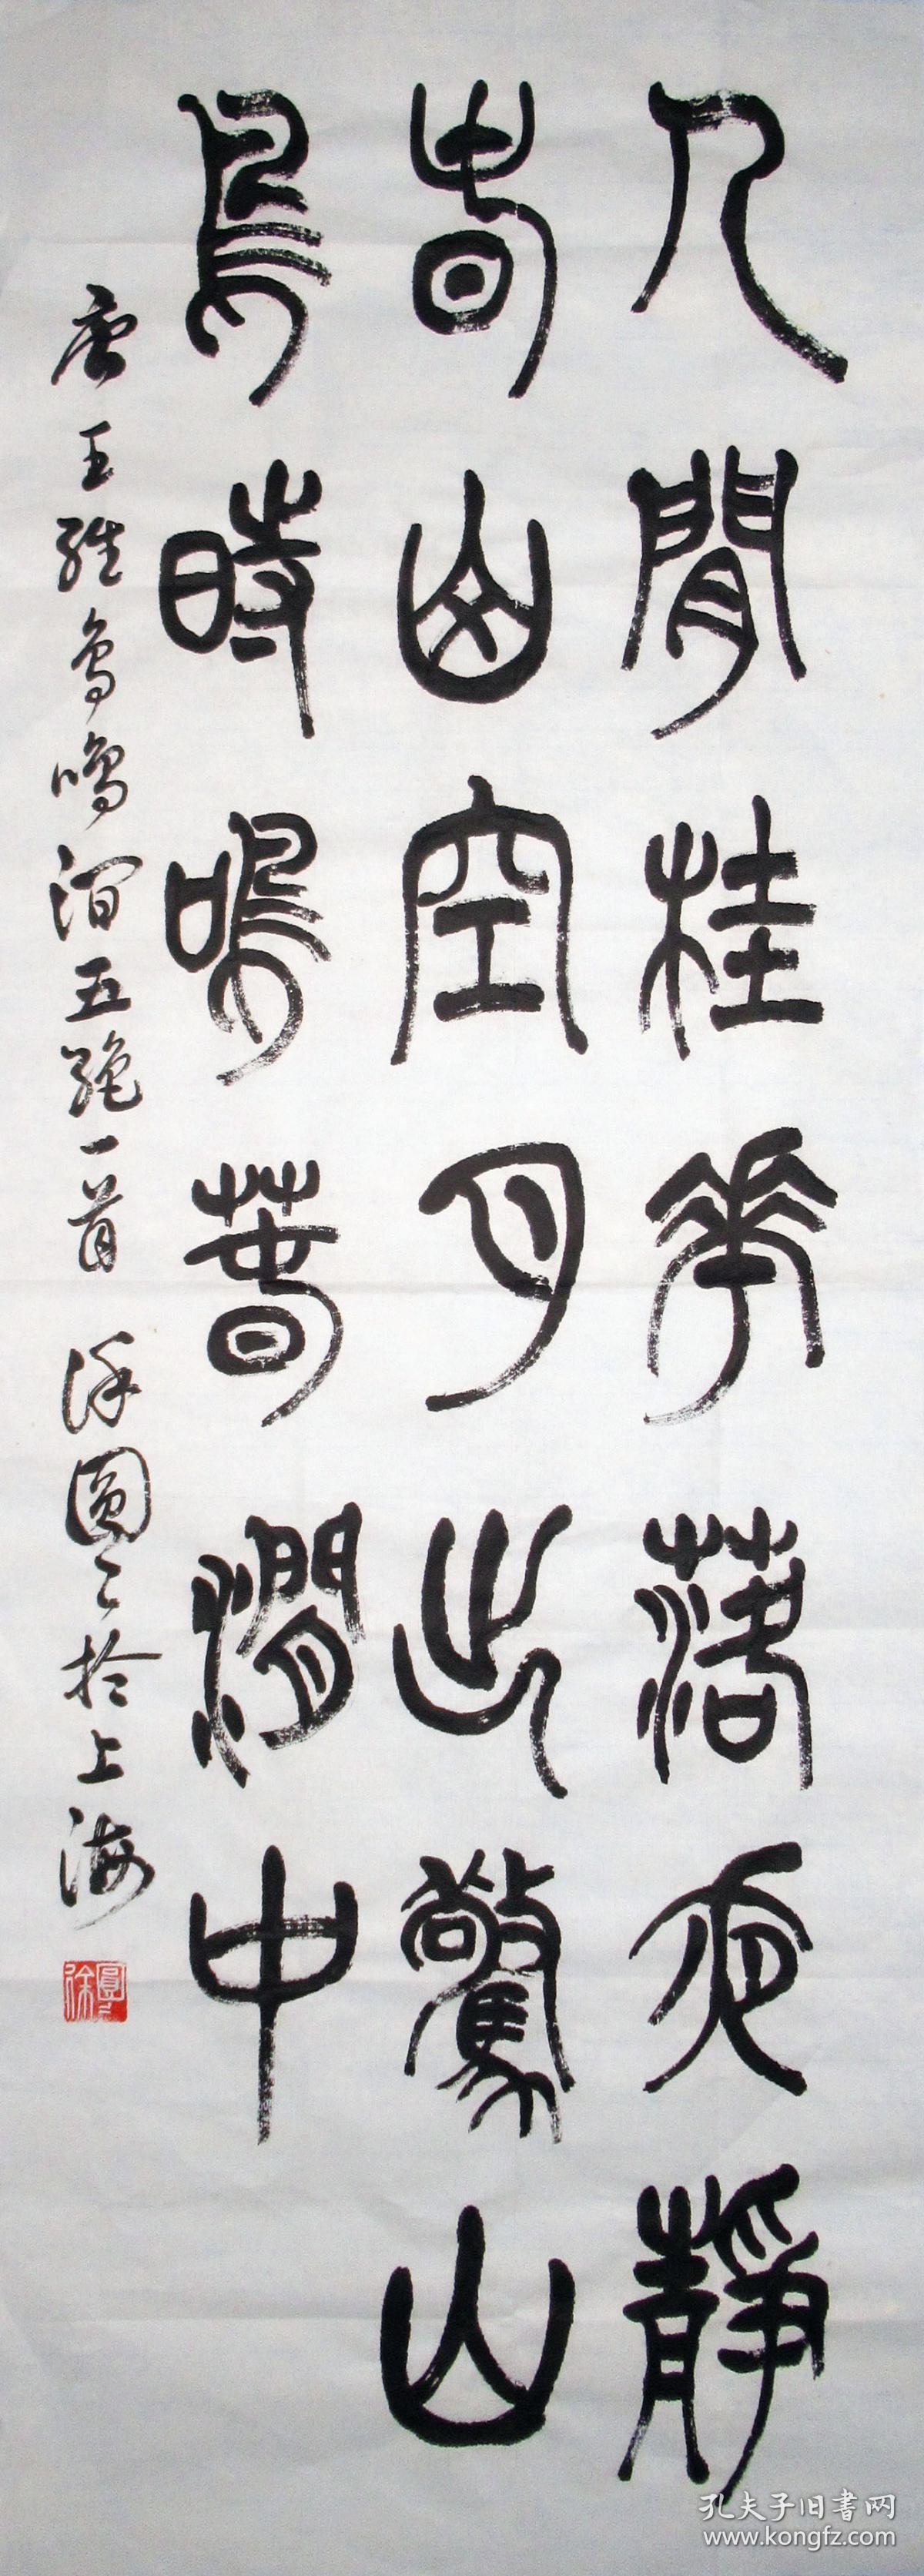 人閒桂華落夜靜
春山空月出驚山
鳥時鳴春澗中
唐王維鳥鳴澗五絕一首 徐圓々於上海
徐圓々
孔夫子旧書网
www.kongfz.com